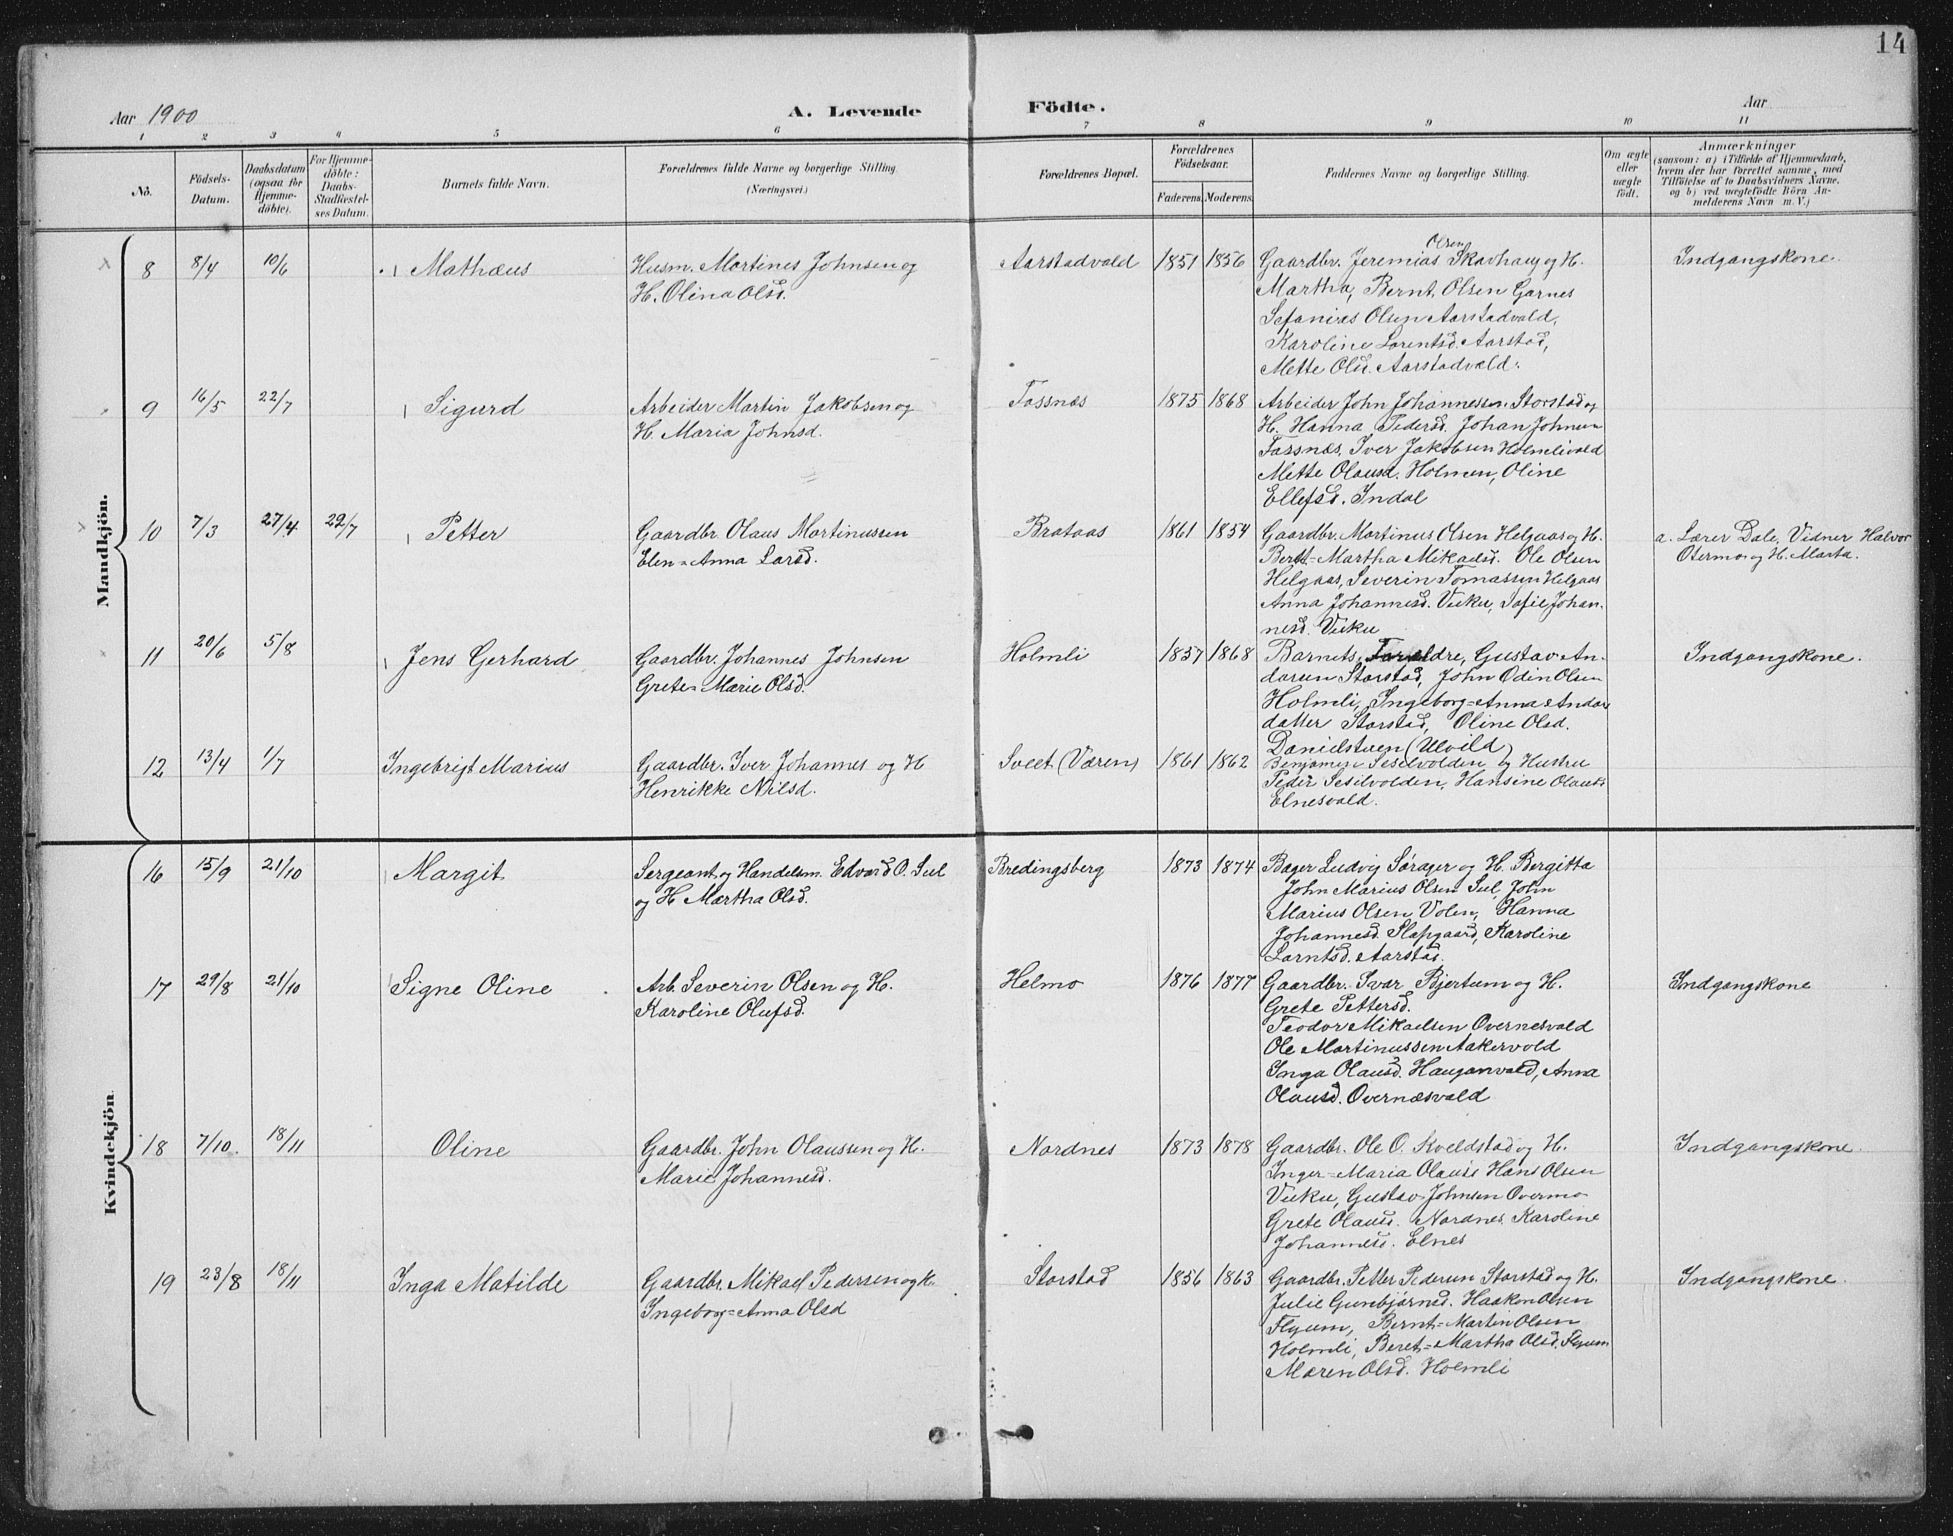 14
Aar 1900
A. Levende Födte.
Aar
1 2 3 4 5 6 7 8 9 10 11
No.
Födsels-
Datum.
Daabsdatum
(ogsaa for
Hjemme-
döbte).
For Hjemme-
döbte:
Daabs-
Stadfæstel-
ses Datum.
Barnets fulde Navn.
Forældrenes fulde Navne og borgerlige Stilling
(Næringsvei.)
Forældrenes Bopæl.
Forældrenes
Födselsaar.
Faderens. Moderens.
Faddernes Navne og borgerlige Stilling.
Om ægte
eller
uægte
födt.
Anmærkninger
(saasom: a) i Tilfælde af Hjemmedaab,
hvem der har forrettet samme, med
Tilföielse af to Daabsvidners Navne,
og b) ved uægtefödte Börn An-
melderens Navn m. V.)
Mandkjön.
8 8/4 10/6 Mathæus
Husm. Martines Johnsen og
H. Olina Olsd.
Aarstadvald 1851 1856
Olsen
Gaardbr. Jeremias Skavhaug og H.
Martha, Bernt Olsen Garnes
Sefanias Olsen Aarstadvald,
Karoline Lorentsd. Aarstad,
Mette Olsd. Aarstadvald.
Indgangskone.
9 16/5 22/7 Sigurd
Arbeider Martin Jakobsen og
H. Maria Johnsd.
Fossnæs 1875 1868
Arbeider John Johannessen Storstad og
H. Hanna Pedersd. Johan Johnsen
Fossnæs, Iver Jakobsen Holmlivald
Mette Olausd. Holmen, Oline
Ellefsd. Indal
10 7/3 27/4 22/7 Petter
Gaardbr. Olaus Martinussen
Elen-Anna Larsd.
Brataas 1861 1854
Gaardbr. Martinus Olsen Helgaas og H.
Beret-Martha Mikaelsd. Ole Olsen
Helgaas, Severin Tomassen Helgaas
Anna Johannesd. Vuku, Sofie Johan-
nesd. Vuku
a. Lærer Dale, Vidner Halvor
Otermo og H. Marta.
11 20/6 5/8 Jens Gerhard
Gaardbr. Johannes Johnsen
Grete-Marie Olsd.
Holmli 1857 1868
Barnets Forældre, Gustav An-
dersen Storstad, John Odin Olsen
Holmli, Ingeborg-Anna Anders
datter Storstad, Oline Olsd.
Danielstuen (Ulvild)
Indgangskone.
12 13/4 1/7 Ingebrigt Marius
Gaardbr. Iver Johannes og H
Henrikke Nilsd.
Sveet (Væren) 1861 1862
Benjamin Sesilvolden og Hustru
Peder Sesilvolden, Hansine Olausd.
Elnesvald.
Kvindekjön.
16 15/9 21/10 Margit
Sergeant og Handelsm. Edvard O. Sul
og H. Martha Olsd.
Bredingsberg 1873 1874
Bager Ludvig Sørager og H. Bergitta
John Marius Olsen Sul, John
Marius Olsen Volen, Hanna
Johannesd. Slapgaard, Karoline
Lorntsd. Aarstad.
17 29/8 21/10 Signe Oline
Arb. Severin Olsen og H.
Karoline Olufsd.
Helmo 1876 1877
Gaardbr. Ivar Bjertum og H.
Grete Pettersd.
Teodor Mikaelsen Overnesvald
Ole Martinussen Aakervold
Inga Olausd. Hauganvald, Anna
Olausd. Overnæsvald
Indgangskone
18 7/10. 18/11 Oline
Gaardbr. John Olaussen og H.
Marie Johannesd.
Nordnes 1873 1878
Gaardbr. Ole O. Kveldstad og H.
Inger-Maria Olausd. Hans Olsen
Vuku, Gustav Johnsen Overmo
Grete Olausd. Nordnes, Karoline
Johannesd. Elnes
Indgangskone.
19 23/8 18/11 Inga Matilde
Gaardbr. Mikael Pedersen og H.
Ingeborg-Anna Olsd
Storstad 1856 1863
Gaardbr. Petter Pedersen Storstad og H.
Julie Gunbjørnsd. Haakon Olsen
Flyum, Bernt-Martin Olsen
Holmli, Beret-Martha Olsd. Flyum
Maren Olsd. Holmli
Indgangskone.